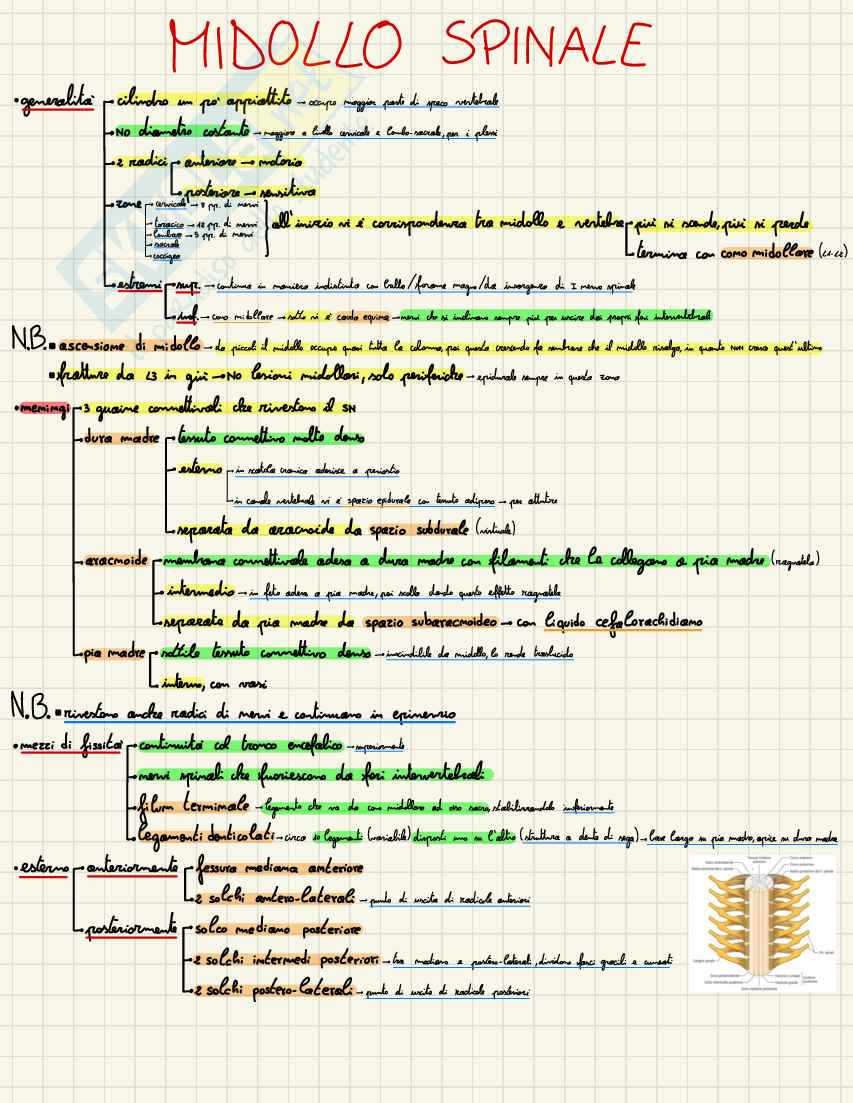 MIDOLLO SPINALE
•generalità
•cilindro un po' appiattito → occupa maggior parte di speco vertebrale
•NO diametro costante → maggiore a livello cervicale e lombo-sacrale, per i plessi
•2 radici •anteriore → motoria
•posteriore → sensitiva
•zone •cervicale → 8 pp. di nervi
•toracico → 12 pp. di nervi
•lombare → 5 pp. di nervi
•sacrale
•coccigea
all'inizio vi è corrispondenza tra midollo e vertebre •più si scende, più si perde
•termina con cono midollare (L1-L2)
•estremi •sup. → continua in maniera indistinta con bulbo/forame magno/da insorgenza di I nervo spinale
•inf. → cono midollare → sotto vi è cauda equina → nervi che si inclinano sempre più per uscire dai propri fori intervertebrali
N.B. ▪ascensione di midollo → da piccoli il midollo occupa quasi tutta la colonna, poi questa crescendo fa sembrare che il midollo risalga, in quanto NON cresce quest'ultimo
▪fratture da L3 in giù → NO lesioni midollari, solo periferiche → epidurale sempre in questa zona
•meningi •3 guaine connettivali che rivestono il SN
•dura madre •tessuto connettivo molto denso
•esterno •in scatola cranica aderisce a periostio
•in canale vertebrale vi è spazio epidurale con tessuto adiposo → per attutire
•separata da aracnoide da spazio subdurale (virtuale)
•aracnoide •membrana connettivale adesa a dura madre con filamenti che la collegano a pia madre (ragnatela)
•intermedio → in feto adesa a pia madre, poi scolla dando questo effetto ragnatela
•separata da pia madre da spazio subaracnoideo → con liquido cefalorachidiano
•pia madre •sottile tessuto connettivo denso → inscindibile da midollo, lo rende traslucido
•interno, con vasi
N.B. ▪rivestono anche radici di nervi e continuano in epinervio
•mezzi di fissità •continuità col tronco encefalico → superiormente
•nervi spinali che fuoriescono da fori intervertebrali
•filum terminale → legamento che va da cono midollare ad osso sacro, stabilizzandolo inferiormente
•legamenti denticolati → circa 20 legamenti (variabile) disposti uno su l'altro (struttura a dente di sega) → base larga su pia madre, apice su dura madre
•esterno •anteriormente •fessura mediana anteriore
•2 solchi antero-laterali → punto di uscita di radicole anteriori
•posteriormente •solco mediano posteriore
•2 solchi intermedi posteriori → tra mediano e postero-laterali, dividono fasci gracili e cuneati
•2 solchi postero-laterali → punto di uscita di radicole posteriori